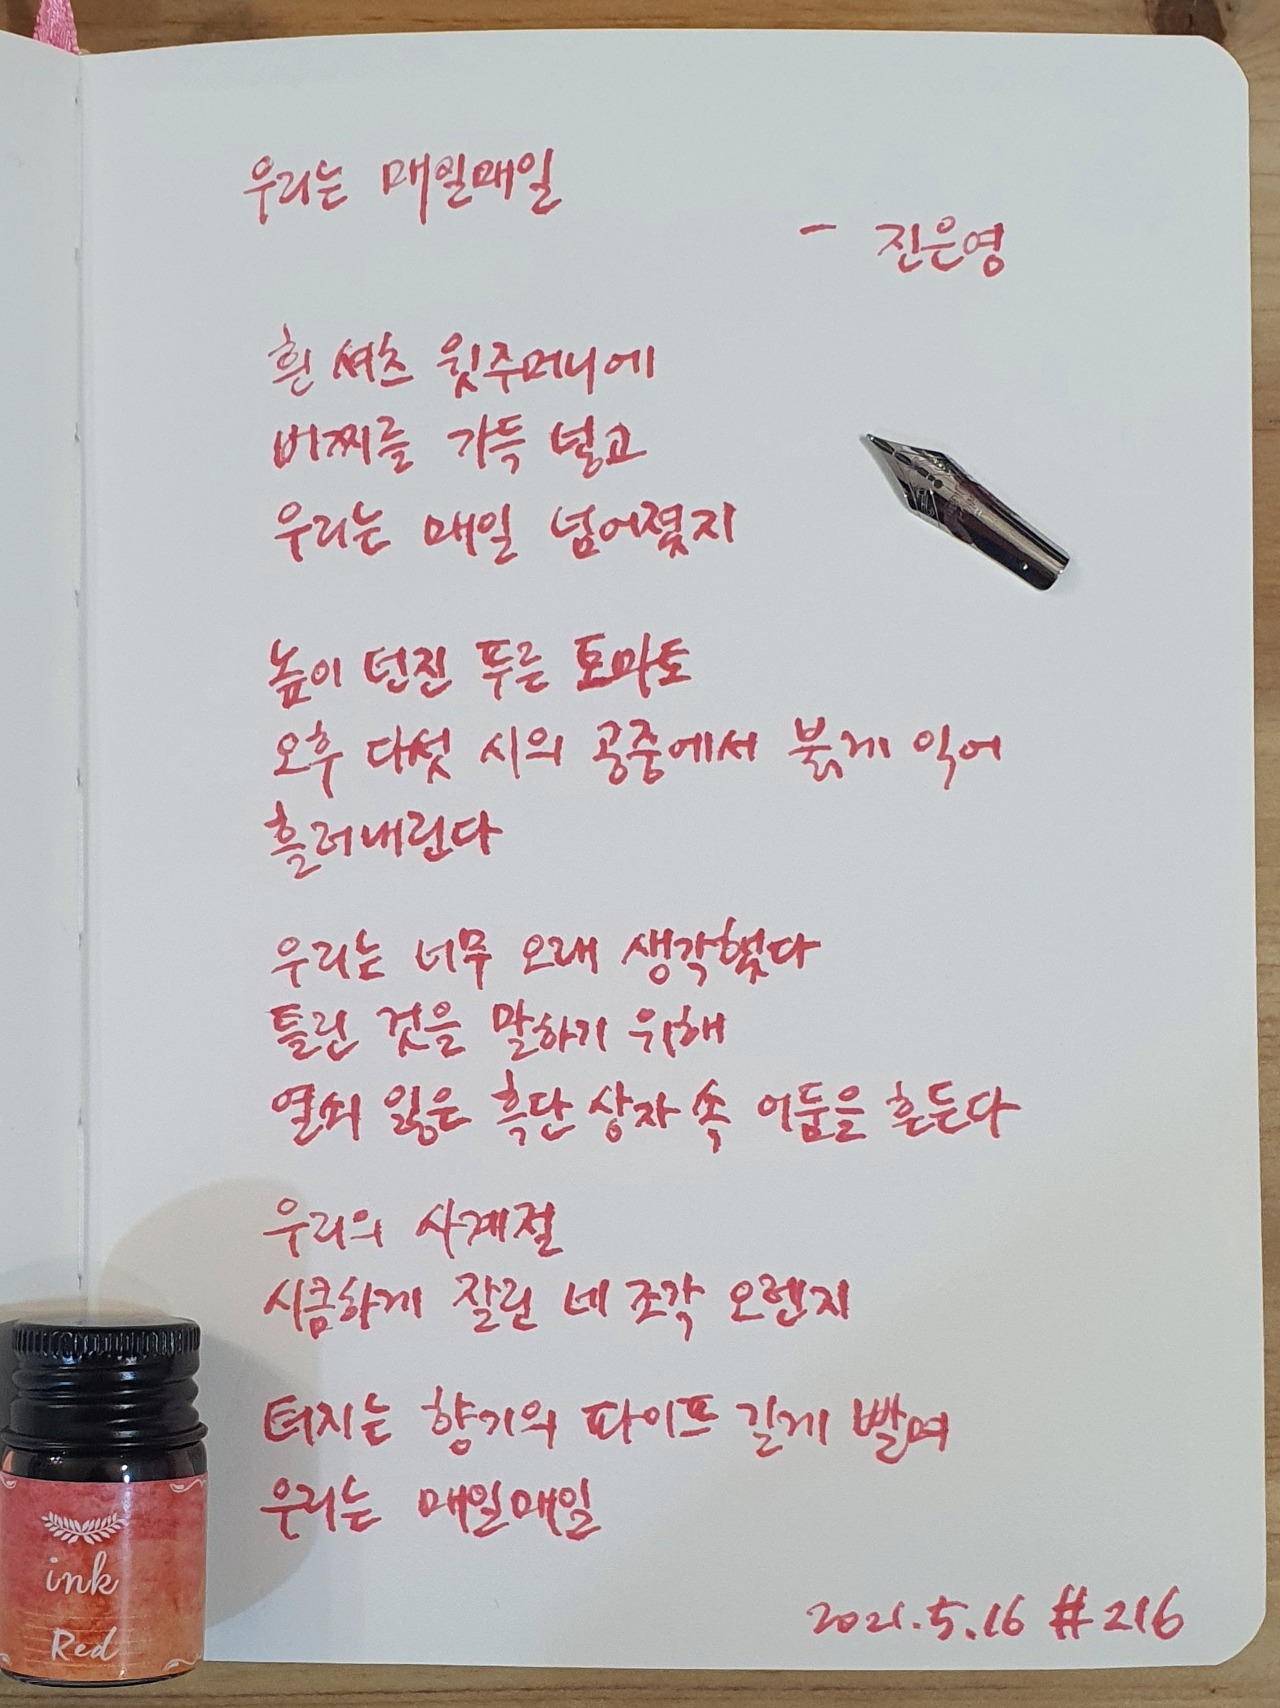 우리는 매일매일
- 진은영
흰 셔츠 윗주머니에
버찌를 가득 넣고
우리는 매일 넘어졌지
높이 던진 푸른 토마토
오후 다섯 시의 공중에서 붉게 익어
흘러내린다
우리는 너무 오래 생각했다
틀린 것을 말하기 위해
열쇠 잃은 흑단 상자 속 어둠을 흔든다
우리의 사계절
시큼하게 잘린 네 조각 오렌지
터지는 향기의 파이프 길게 빨며
우리는 매일매일
2021.5.16 #216
ink
Red